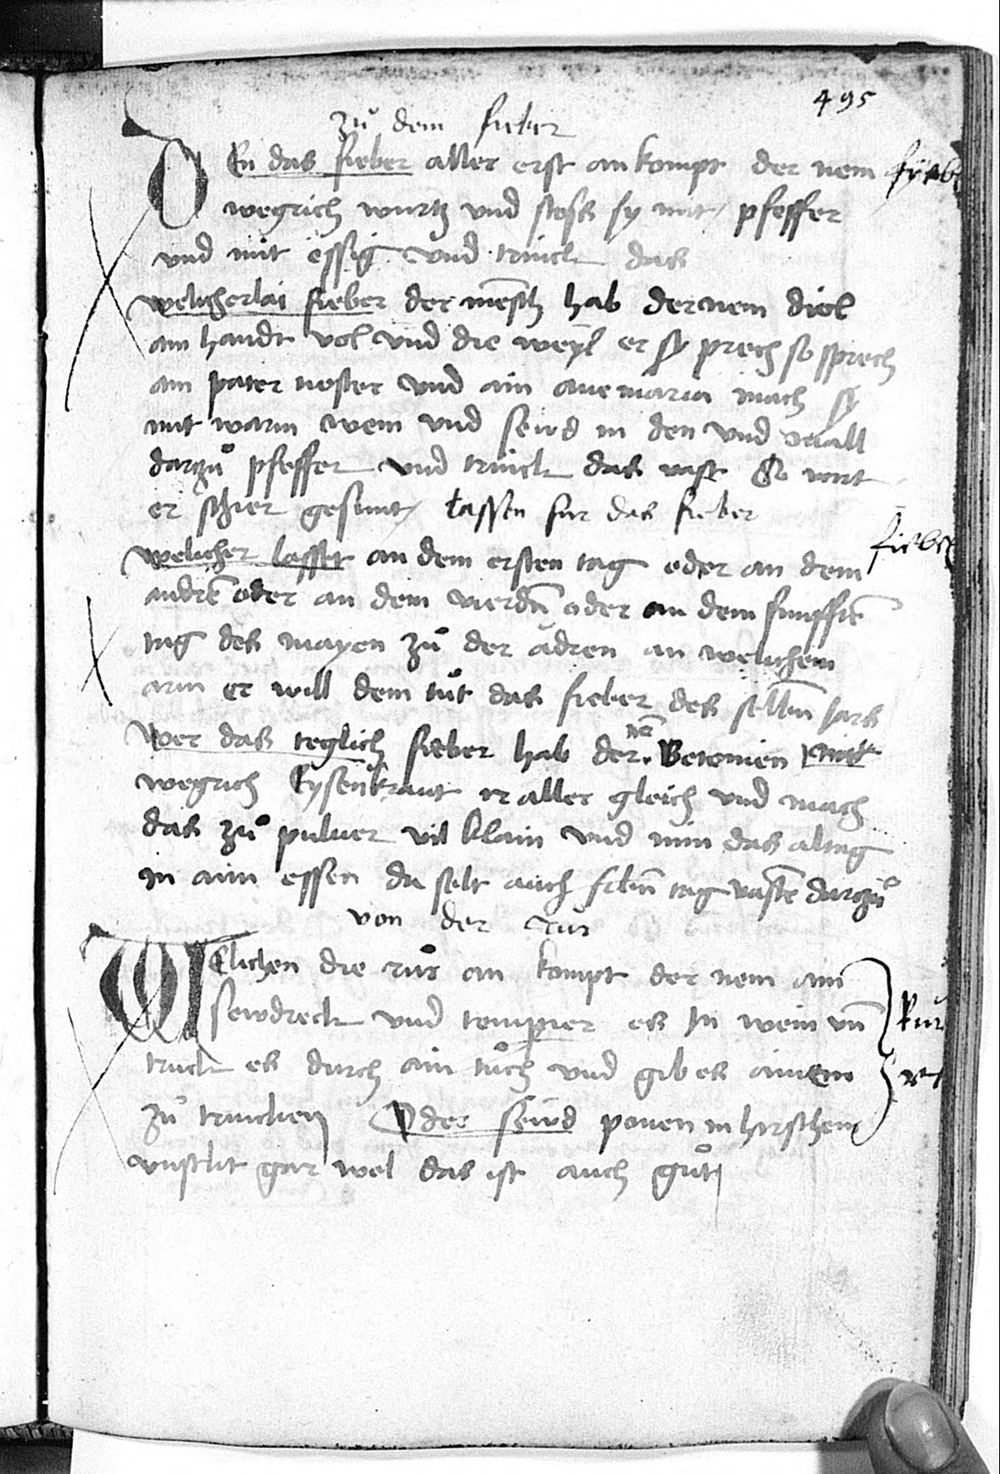 495
zů dem fieber
DEn das fieber aller erst an kompt der nem
fyeb
wegrich wurtz vnd stoss sy mit pfeffer
vnd mit essig vnd trinck das
welicherlai fieber der mẽsch hab der nem diol
ain handt vol vnd die weyl er sy prech so sprech
ain pater noster vnd ain aue maria mach sy
mit warm wein vnd seud in den vnd
darzů pfeffer vnd trinck das vast So wirt
er schier gesunt lassen fur das fieber
fieber
welicher lasset an dem ersten tag oder an dem
andrẽ oder an dem vierdñ oder an dem funfftẽ
tag des mayen zů der adren an welichem
arm er will dem tůt das fieber des selbñ jars
Wer das teglich fieber hab der nẽ Betonien
wegrich Eysenkraut aller gleich vnd mach
das zů puluer vil klain vnd nim das altag
in aim essen du solt auch sibñ tag vastẽ darzů
von der Rur
WElichen die růr an kompt der nem ain
sewdreck vnd tempier es In wein vñ
Rur
truck es durch ain tůch vnd gib es ainem
zů trincken Oder seud ponen in hirschem
vnslit gar wol das ist auch gůt